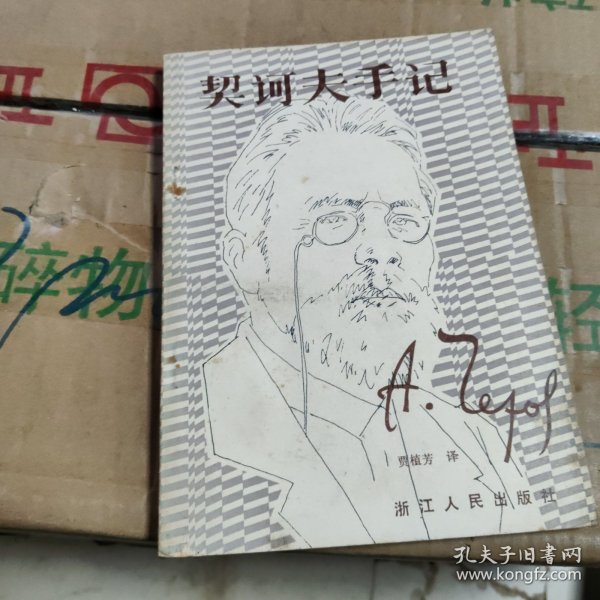 契诃夫手记
А. Чехов
贾植芳 译
浙江人民出版社
碎物
轻
孔夫子旧书网
www.kongfz.com